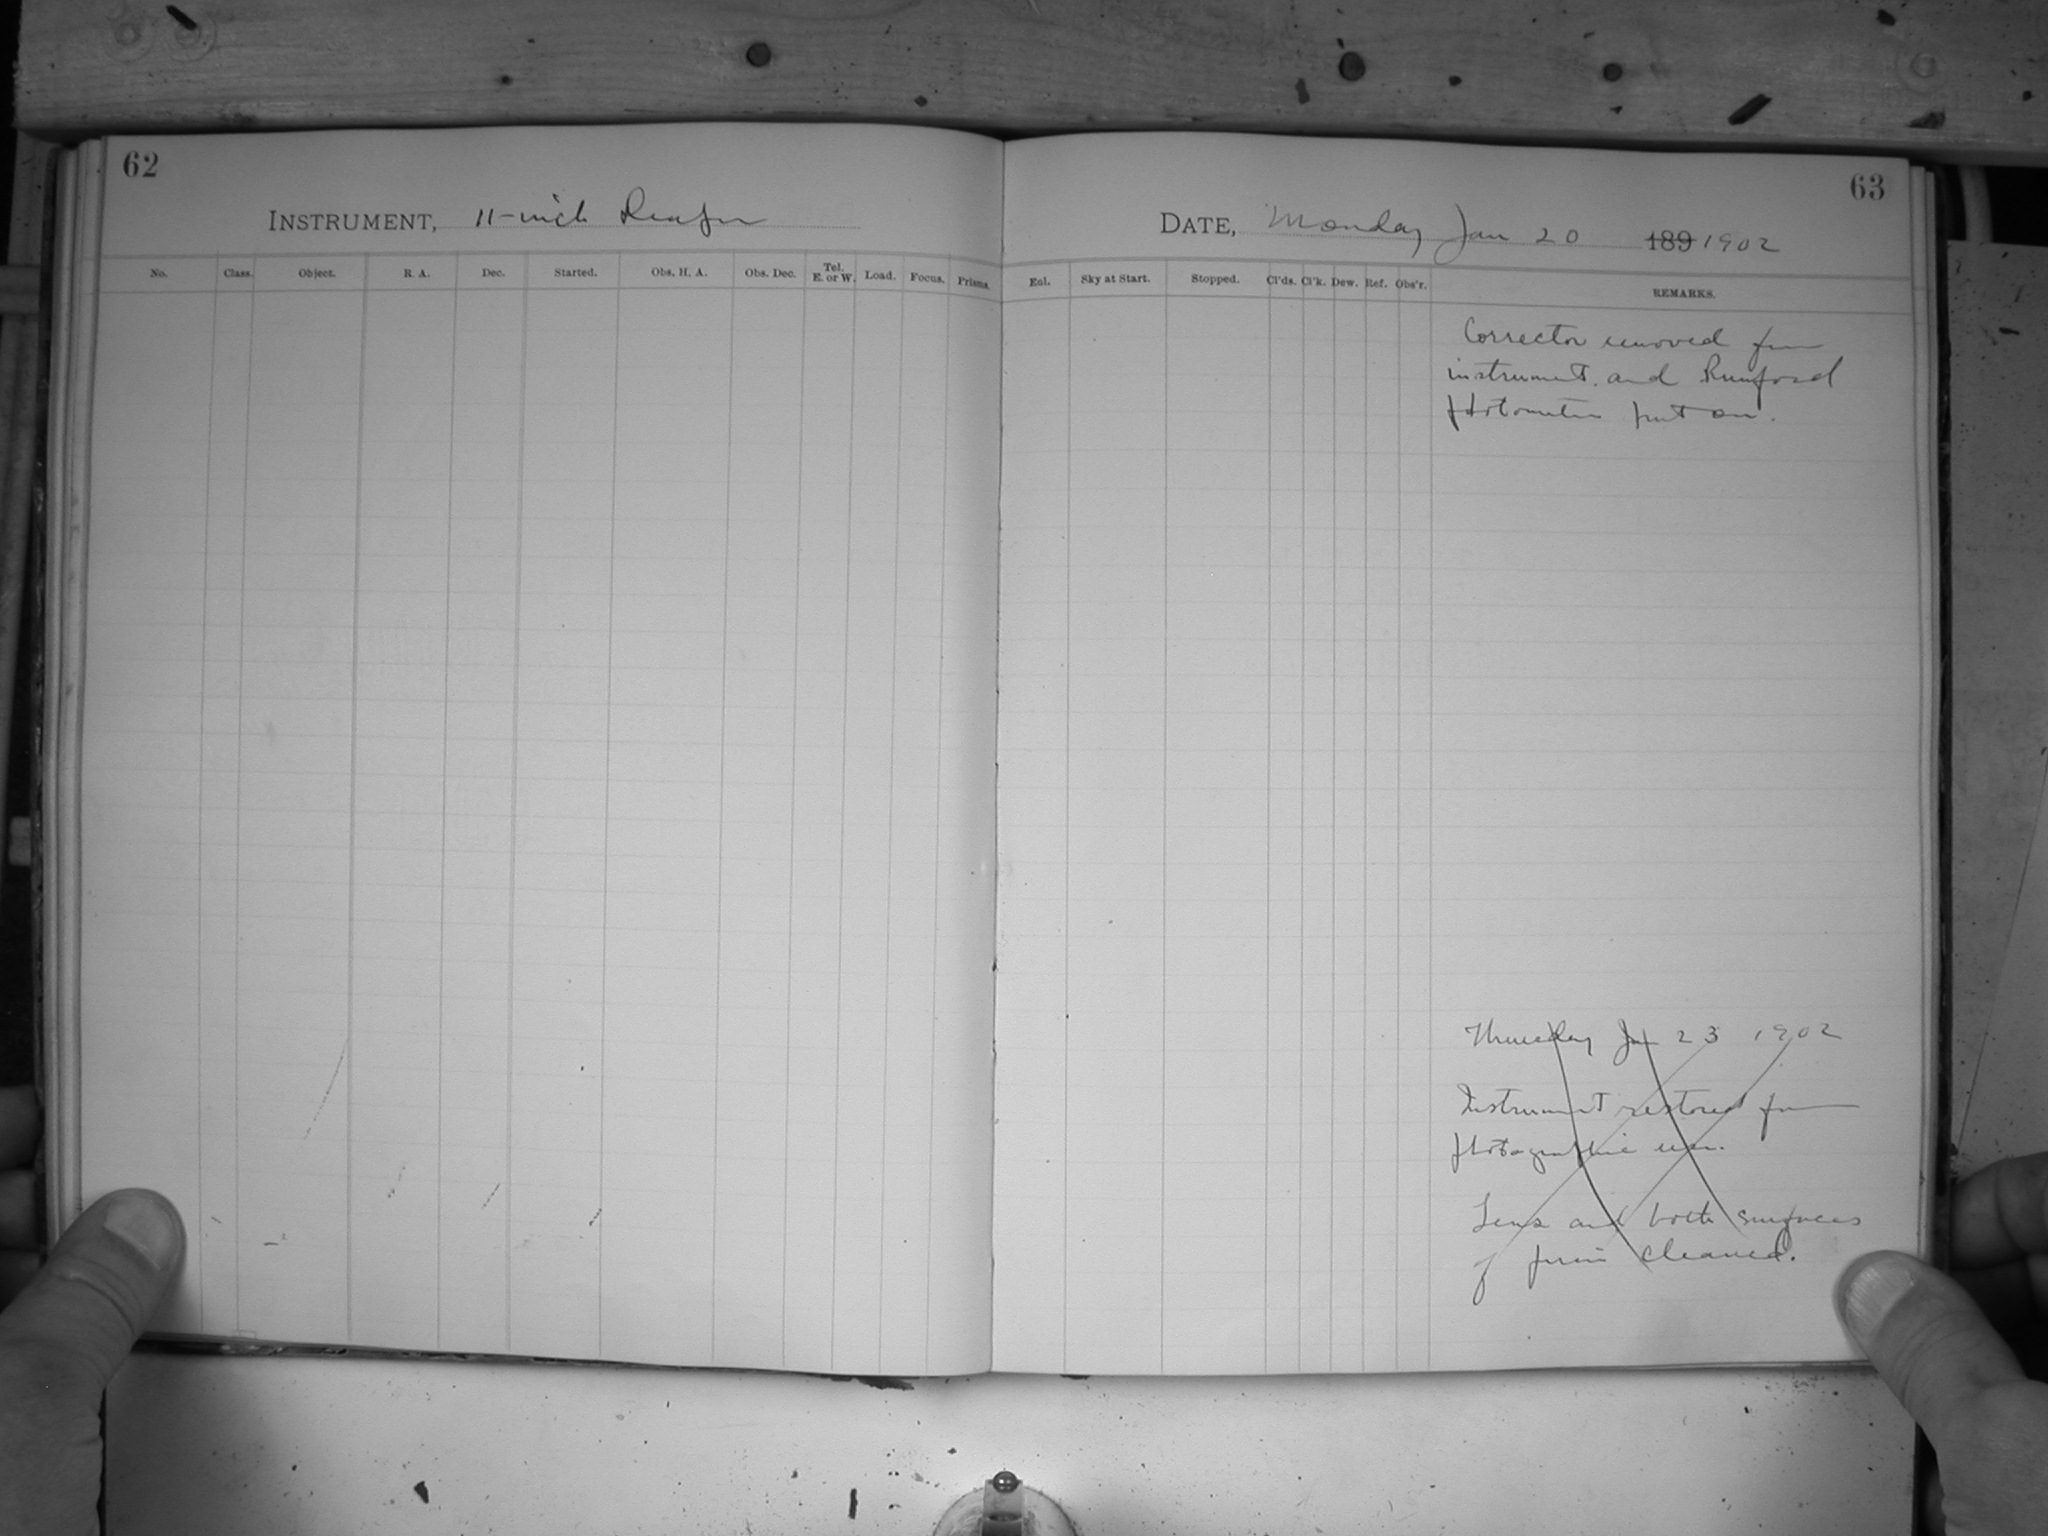 62
INSTRUMENT, 11-inch Draper
No. Class. Object. R. A. Dec. Started. Obs. H. A. Obs. Dec. Tel. E. or W. Load. Focus. Prisms.
63
DATE, Monday Jan 20 189 1902
Eul. Sky at Start. Stopped. Cl'ds. Cl'k. Dew. Ref. Obs'r. REMARKS.
Corrector removed from
instrument. and Rumford
photometer put on.
Thursday Jan 23 1902
Instrument restored for
photographic use.
Lens and both surfaces
of prism cleaned.